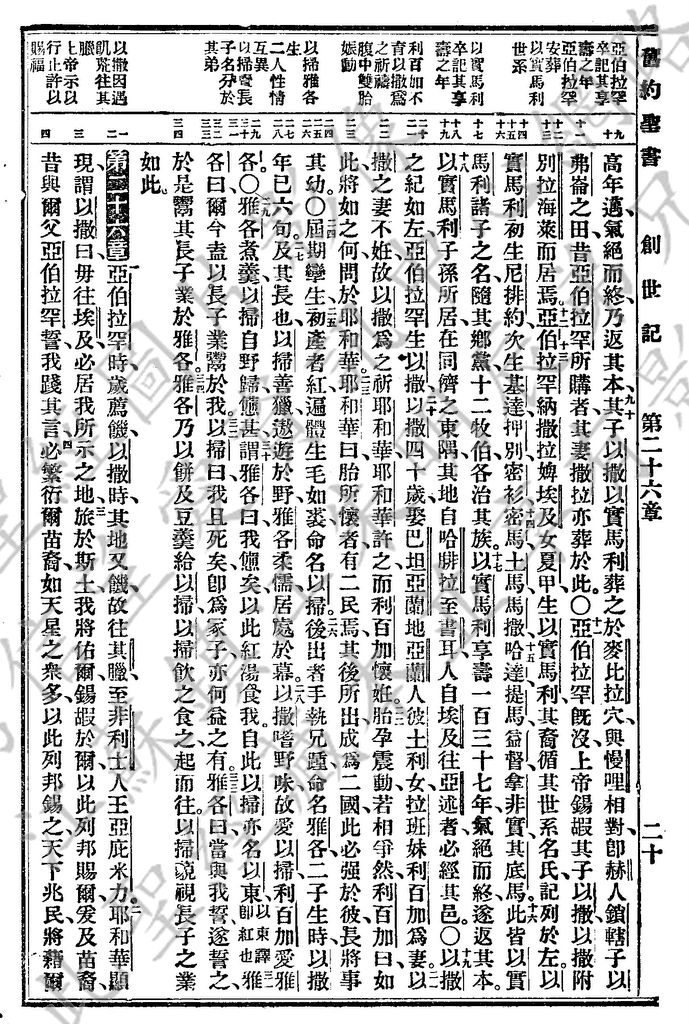 舊約聖書 創世記 第二十六章 二十
亞伯拉罕
卒記其享
壽之年
亞伯拉罕
安葬
以實馬利
世系
以實馬利
卒記其享
壽之年
利百加不
育以撒爲
之祈禱
腹中雙胎
娠動
以掃雅各
生
二人性情
互異
以掃鬻長
子名分於
其弟
以撒因遇
飢荒往其
臘
上帝示以
行止許以
賜福
高年邁氣絕而終乃返其本其子以撒以實馬利葬之於麥比拉穴與慢哩相對卽赫人鎖轄子以
弗崙之田昔亞伯拉罕所購者其妻撒拉亦葬於此〇亞伯拉罕旣沒上帝錫嘏其子以撒以撒附
別拉海萊而居焉亞伯拉罕納撒拉婢埃及女夏甲生以實馬利其裔循其世系名氏記列於左以
實馬利初生尼排約次生基達押別密衫密馬土馬馬撒哈達提馬益督拿非實其底馬此皆以實
馬利諸子之名隨其鄕黨十二牧伯各治其族以實馬利享壽一百三十七年氣絕而終遂返其本
以實馬利子孫所居在同儕之東隅其地自哈腓拉至書耳人自埃及往亞述者必經其邑〇以撒
之紀如左亞伯拉罕生以撒以撒四十歲娶巴坦亞蘭地亞蘭人彼土利女拉班妹利百加爲妻以
撒之妻不姙故以撒爲之祈耶和華耶和華許之而利百加懷姙胎孕震動若相爭然利百加曰如
此將如之何問於耶和華耶和華曰胎所懷者有二民焉其後所出成爲二國此必強於彼長將事
其幼〇屆期孿生初產者紅遍體生毛如裘命名以掃後出者手執兄踵命名雅各二子生時以撒
年已六旬及其長也以掃善獵遨遊於野雅各柔儒居處於幕以撒嗜野味故愛以掃利百加愛雅
各〇雅各煮羹以掃自野歸憊甚謂雅各曰我憊矣以此紅湯食我自此以掃亦名以東以東譯卽紅也雅
各曰爾今盍以長子業鬻於我以掃曰我且死矣卽爲冢子亦何益之有雅各曰當與我誓遂誓之
於是鬻其長子業於雅各雅各乃以餅及豆羹給以掃以掃飲之食之起而往以掃藐視長子之業
如此
第二十六章亞伯拉罕時歲薦饑以撒時其地又饑故往其臘至非利士人王亞庇米力耶和華顯
現謂以撒曰毋往埃及必居我所示之地旅於斯土我將佑爾錫嘏於爾以此列邦賜爾爰及苗裔
昔與爾父亞伯拉罕誓我踐其言必繁衍爾苗裔如天星之衆多以此列邦錫之天下兆民將藉爾